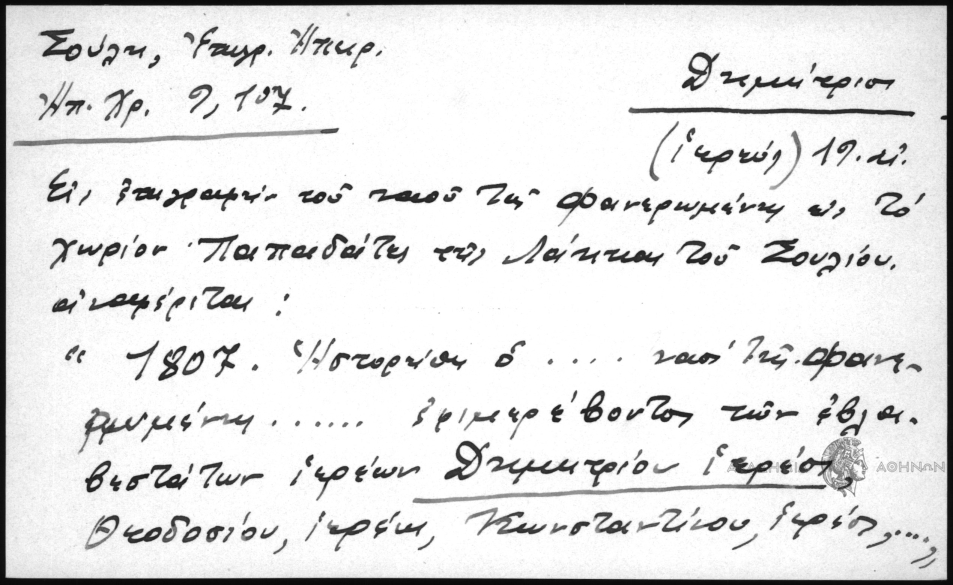 Σούλη, Ἐπιγρ. Ἠπειρ.
Ἠπ. Χρ. 9, 107.
Δημήτριος
(ἱερεύς) 19. αἰ.
Εἰς ἐπιγραφὴν τοῦ ναοῦ τῆς Φανερωμένης εἰς τὸ
χωρίον Παπαδάτες τῆς Λάκκας τοῦ Σουλίου.
ἀναφέρεται :
" 1807. Ἠστορείθη ὁ .... ναὸς τῆς Φανε-
ρωμένης ...... ἐφιμερέβοντος τῶν ἐβλα-
βεστάτων ἱερέων Δημητρίου ἱερέος,
Θεοδοσίου, ἱερέως, Κωνσταντίνου, ἱερέος,....,
ΑΚΑΔΗΜΙΑ ΑΘΗΝΩΝ